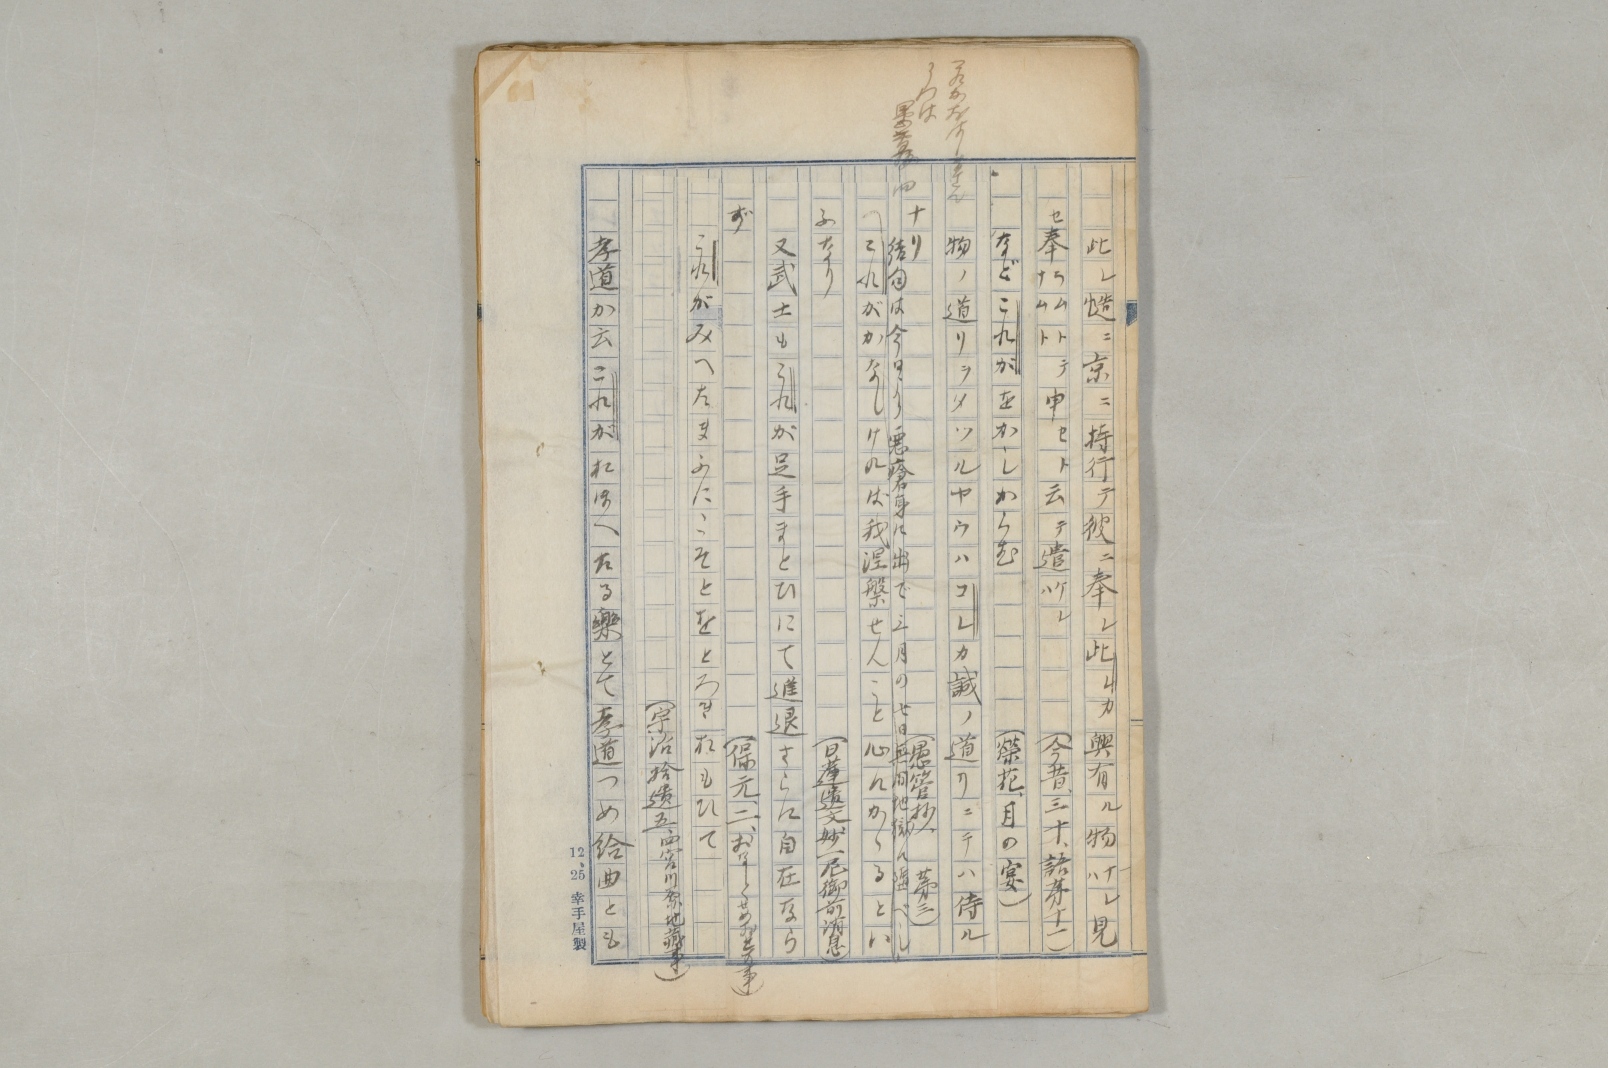 此レ慥ニ京ニ持行テ彼ニ奉レ此レカ興有ル物ナレハ見
セ奉ラムトナムトテ申セト云テ遣ケレハ
(今昔、三十、語第十一)
などこれがをかしからむ
(榮花、月の宴)
物ノ道リヲメツルヤウハコレカ誠ノ道リニテハ侍ル
ナリ
(愚管抄、第三)
結句は今日より悪瘡身に出で三月の七日無間地獄に堕べし、
これがかなしければ我涅槃せんこと心にかゝるとい
ふなり
(日蓮遺文妙一尼御前消息)
又武士もこれが足手まとひにて進退さらに自在なら
ず
(保元、二、
これがみへたまふにこそとをとろきおもひて
(宇治拾遺五 四宮川原地蔵事)
孝道か云これがおほへたる樂とて孝道つめ給曲とも
12、25 幸手屋製